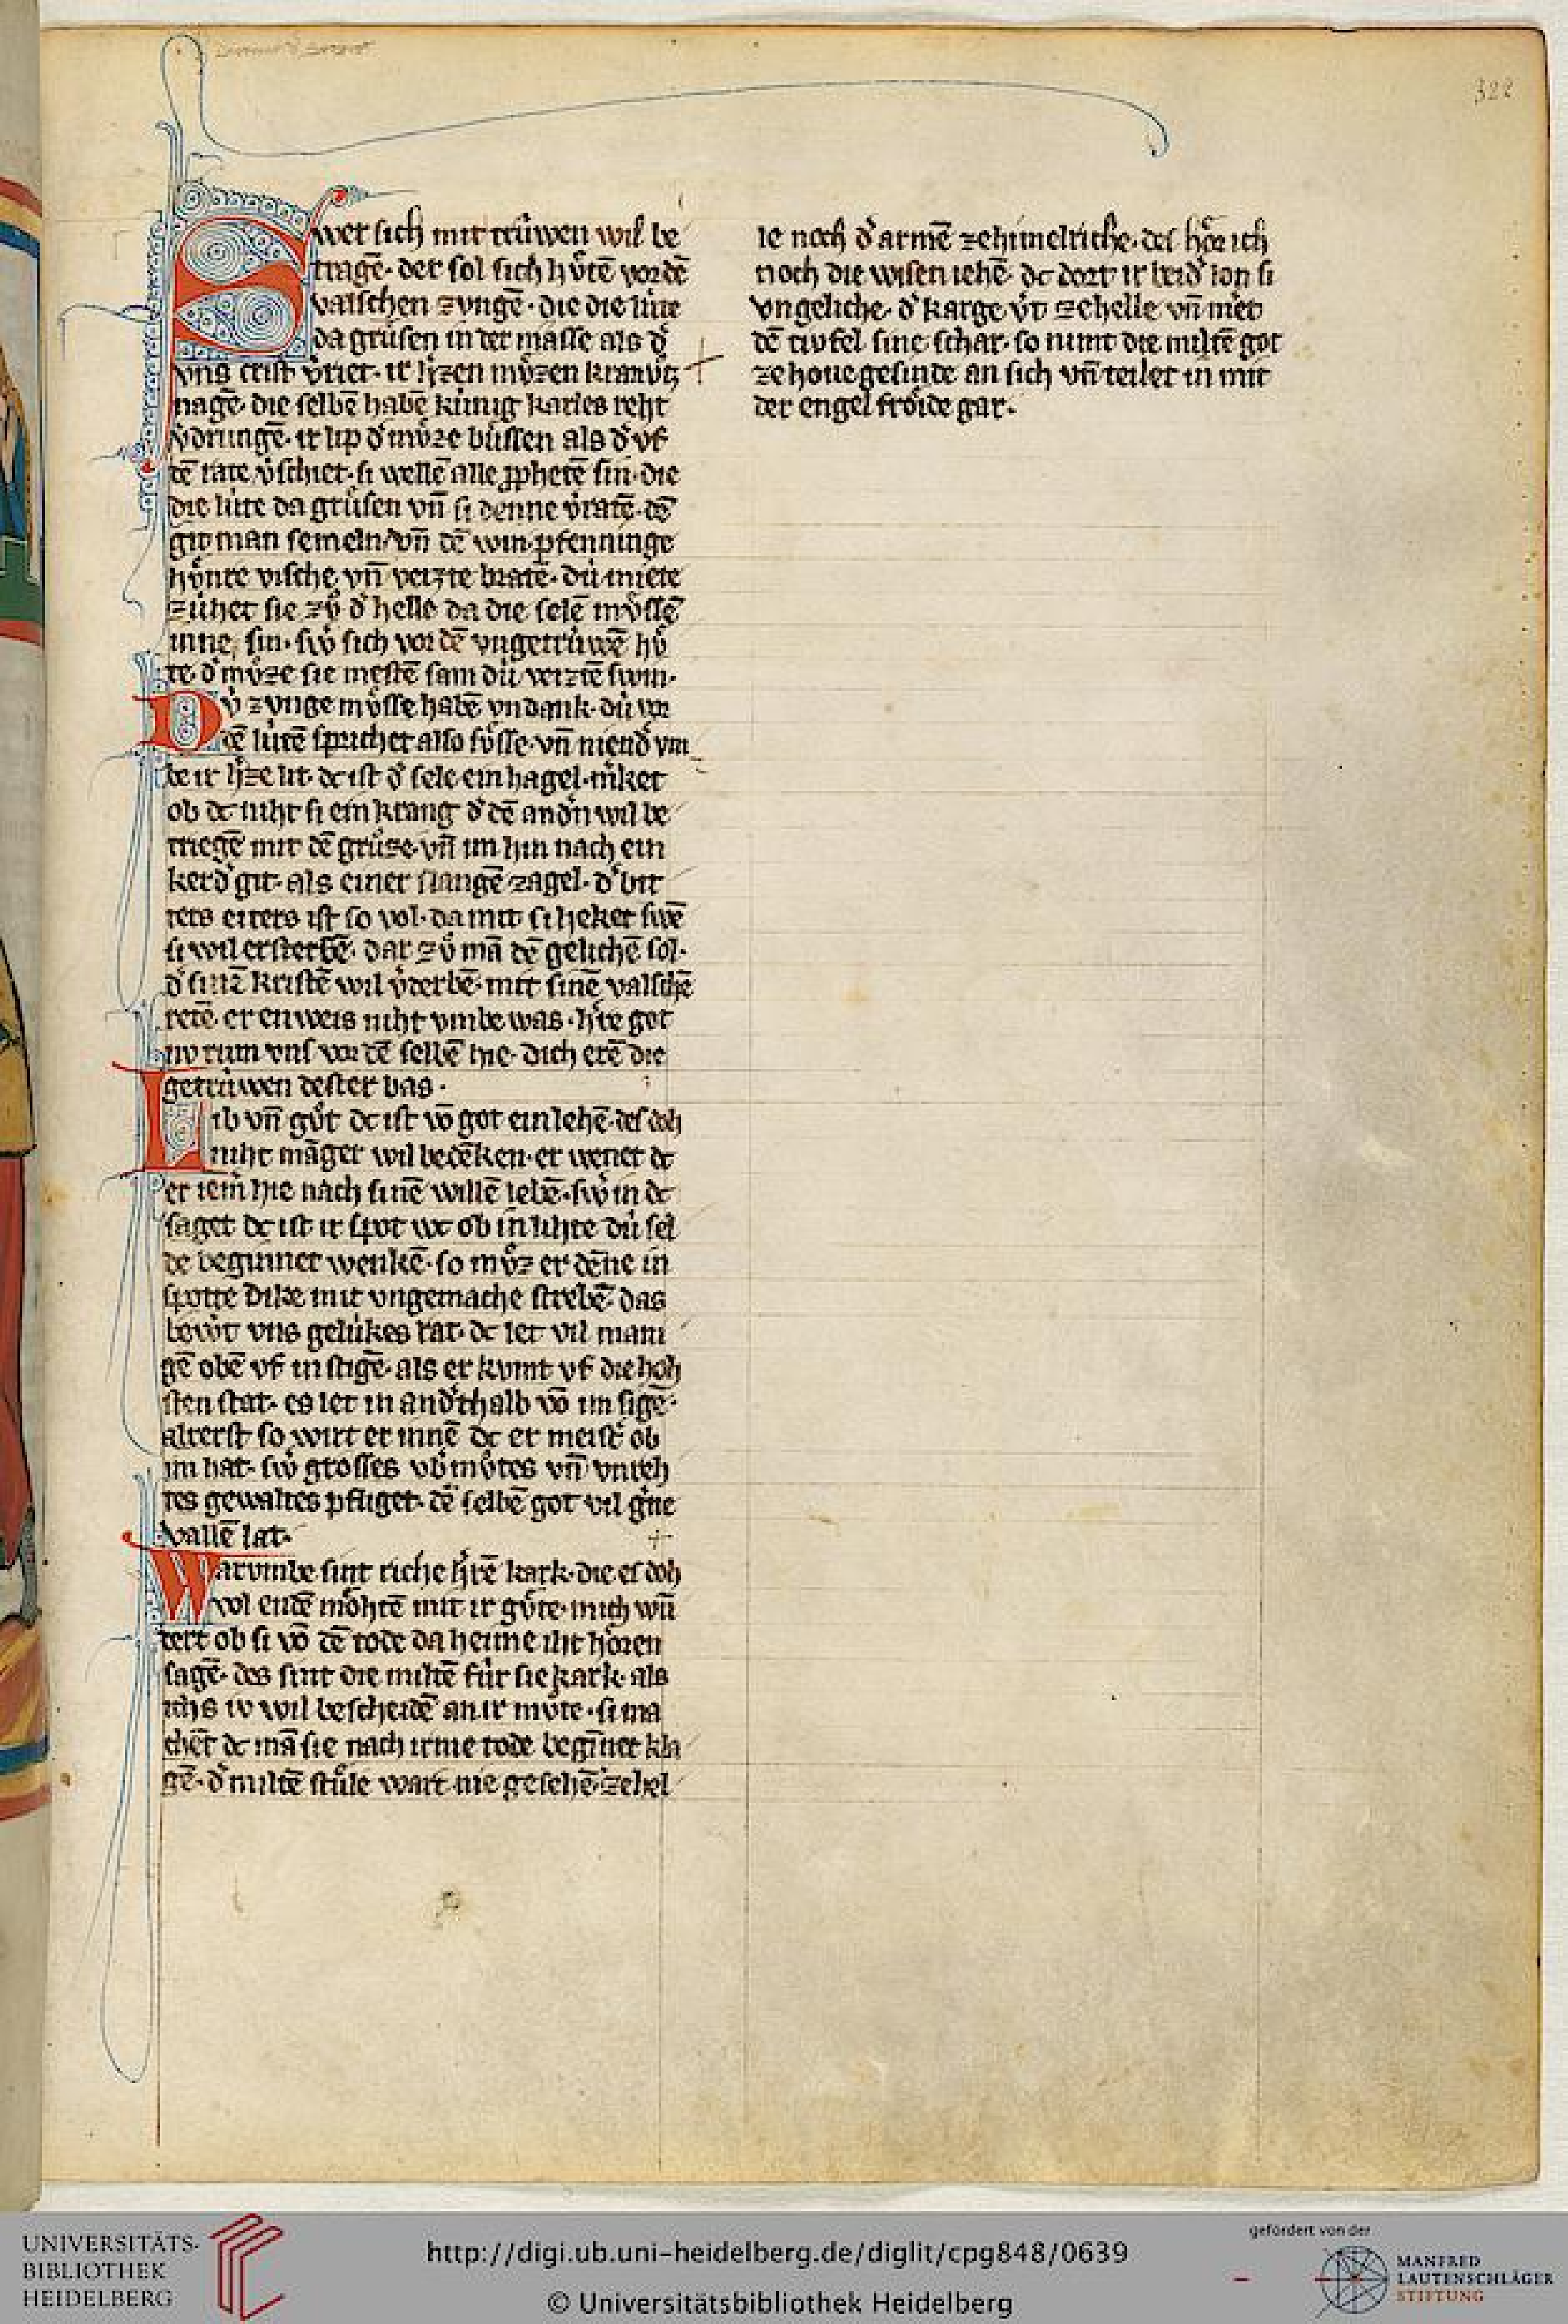 322
Swer sich mit trúwen wil be
tragē· der sol sich hůtē vor dē
valschen zvngē· die die lúte
da grůsen in der masse als dͤ
vns crist vͤriet· ir lýzen můzen kranvͦg
nagē· die selbē habē kúnig karles reht
vͤdrungē· ir lip dͤ můze bússen als dͤ vf
dē rate vͤschiet· si wellē alle ꝓphetē sin· die
die lúte da grůsen vn̄ si denne vͤratē· dē
git man semeln vn̄ dē win· pfenninge
hv́nre vische vn̄ veizte bratē· dú miete
zúhet sie zů dͤ helle da die selē můssē
inne sin· swͤ sich vor dē vngetrúwē hů
te· dͤ můze sie mestē sam dú veiztē swin·
Dv́ zvnge můsse habē vndank· dú vor
dē lútē sprichet also sůsse· vn̄ niendͤ vm
be ir h͛ze lit· dc ist dͤ sele ein hagel· m͛ket
ob dc niht si ein krang dͤ dē andͤn wil be
triegē mit dē grůze· vn̄ im hin nach ein
kerdͤ git· als einer slangē zagel· dͤ bit
ters eiters ist so vol· da mit si heket swē
si wil ersterbē· dar zů mā dē gelichē sol·
dͤ sinē kristē wil vͤderbē· mit sinē valschē
retē· er enweis niht vmbe was· h͛re got
nv rum vns vor dē selbē hie· dich erē die
getrúwen dester bas·
Lib vn̄ gůt dc ist vō got ein lehē· des doh
niht māger wil bedēken· er wenet dc
er iem̄ hie nach sinē willē lebē· swͤ in dc
saget dc ist ir spot wc ob in lihte dú sel
de beginnet wenkē· so můz er dēne in
spotte dike mit vngemache strebē· das
bewͤt vns gelúkes rat· dc let vil mani
gē obē vf in stigē· als er kvmt vf die hoh
sten stat· es let in andͤthalb vō im sigē·
alrerst so wirt er innē dc er meistͤ ob
im hat· swͤ grosses vbͤmůtes vn̄ vnreh
tes gewaltes pfliget· dē selbē got vil g͛ne
vallē lat·
Warvmbe sint riche h͛rē kark· die es doh
wol endē mőhtē mit ir gůte· mich wū
dert ob si vō dē tode da heime iht hőren
sagē· des sint die miltē fúr sie kark· als
ichs iv wil bescheidē an ir můte· si ma
chēt dc mā sie nach irme tode begīnet kla
gē· dͤ miltē stůle wart nie gesehē zehel
le noch dͤ armē zehimelriche· des hőr ich
noch die wisen iehē· dc dort ir beidͤ lon si
vngeliche· dͤ karge vͤt zehelle vn̄ mͤet
dē tiufel sine schar· so nimt die miltē got
ze houegesinde an sich vn̄ teilet in mit
der engel frőide gar·
UNIVERSITÄTS-
BIBLIOTHEK
HEIDELBERG
http://digi.ub.uni-heidelberg.de/diglit/cpg848/0639
© Universitätsbibliothek Heidelberg
gefördert von der
MANFRED
LAUTENSCHLÄGER
STIFTUNG